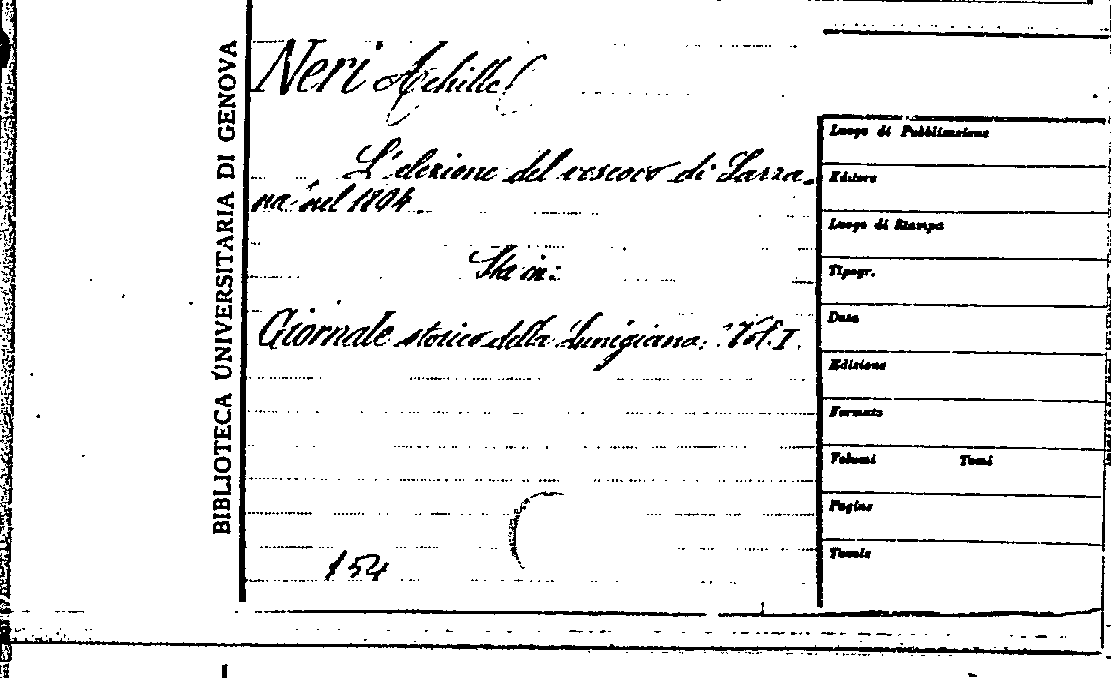 BIBLIOTECA UNIVERSITARIA DI GENOVA
Neri Achille
L'elezione del vescovo di Sarza-
na nel 1804.
Sta in:
Giornale storico della Lunigiana. Vol. I.
154
Luogo di Pubblicazione
Editore
Luogo di Stampa
Tipogr.
Data
Edizione
Formato
Volumi Tomi
Pagine
Tavole